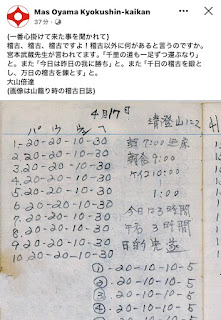 Mas Oyama Kyokushin-kaikan
37分
(一番心掛けて来た事を聞かれて)
稽古、稽古、稽古ですよ！稽古以外に何があると言うのですか。
宮本武蔵先生が言われてます。「千里の道も一足ずつ運ぶなり」
と。また「今日は昨日の我に勝ち」と。また「千日の稽古を鍛と
し、万日の稽古を錬とす」と。
大山倍達
(画像は山籠り時の稽古日誌)
4月17日
清澄山にて
1-20-20-10-30
2-20-20-10-30
3-20-20-10-30
4-20-20-10-30
5-20-20-10-30
6-20-20-10-30
7-20-20-10-30
8-20-20-10-30
9-20-20-10-30
10-20-20-10-30
朝
朝食 9:00
ケイコ 10:00
1:00
今日 3時間
午后 3時間
目的
①-20-10-10-5
②-20-10-10-5
③-20-10-10-5
④-20-10-10-5
⑤-20-10-10-5